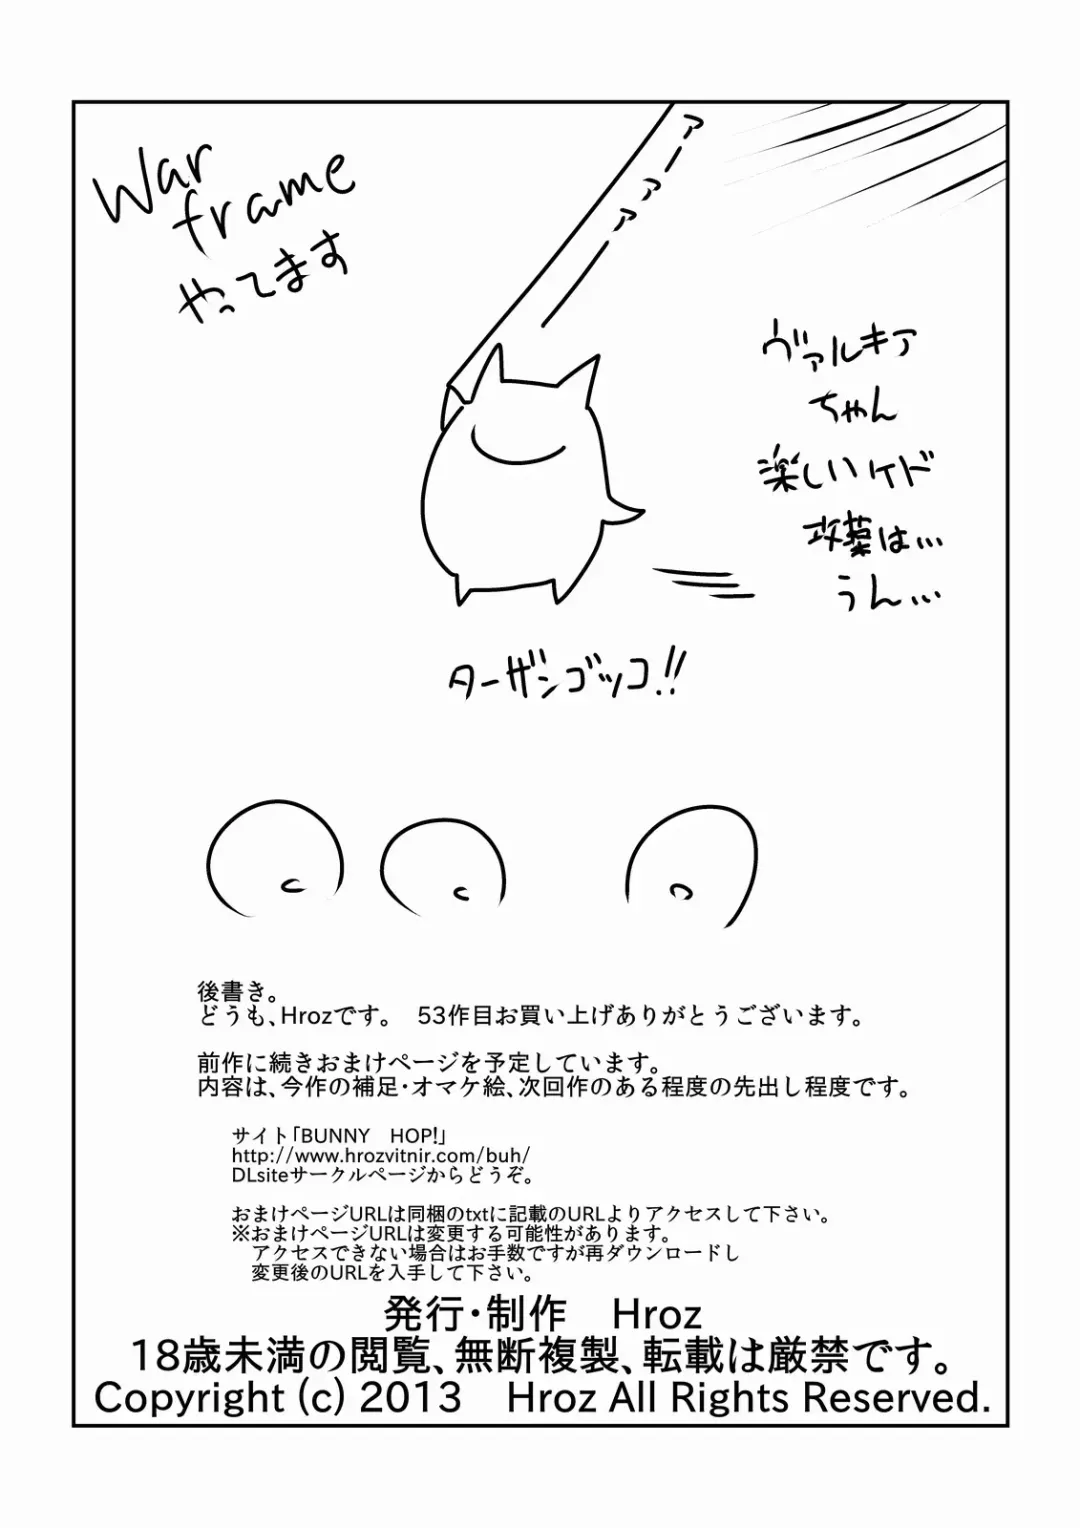 War
frame
やってます
アーァァーーー
ヴァルキア
ちゃん
楽しいケド
攻撃は…
うん…
ターザンゴッコ!!
後書き。
どうも、Hrozです。　53作目お買い上げありがとうございます。
前作に続きおまけページを予定しています。
内容は、今作の補足・オマケ絵、次回作のある程度の先出し程度です。
サイト「BUNNY　HOP!」
http://www.hrozvitnir.com/buh/
DLsiteサークルページからどうぞ。
おまけページURLは同梱のtxtに記載のURLよりアクセスして下さい。
※おまけページURLは変更する可能性があります。
アクセスできない場合はお手数ですが再ダウンロードし
変更後のURLを入手して下さい。
発行・制作　Hroz
18歳未満の閲覧、無断複製、転載は厳禁です。
Copyright (c) 2013　Hroz All Rights Reserved.